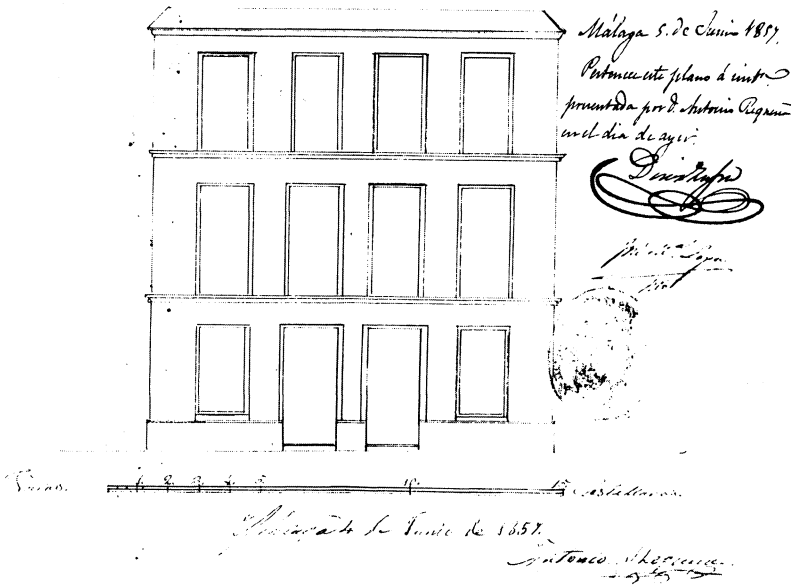 Málaga 5. de Junio 1857.
Pertenece este plano á inst.ª
presentada por D. Antonio Requena
en el dia de ayer.
1. 2. 3. 4. 5. 10. 15 Castellanas.
Málaga 4 de Junio de 1857.
Antonio